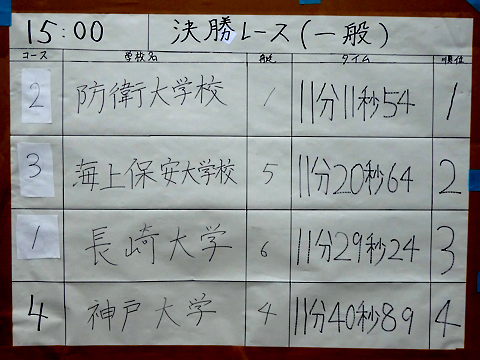 15:00 決勝レース(一般)
コース 学校名 艇 タイム 順位
2 防衛大学校 1 11分11秒54 1
3 海上保安大学校 5 11分20秒64 2
1 長崎大学 6 11分29秒24 3
4 神戸大学 4 11分40秒89 4